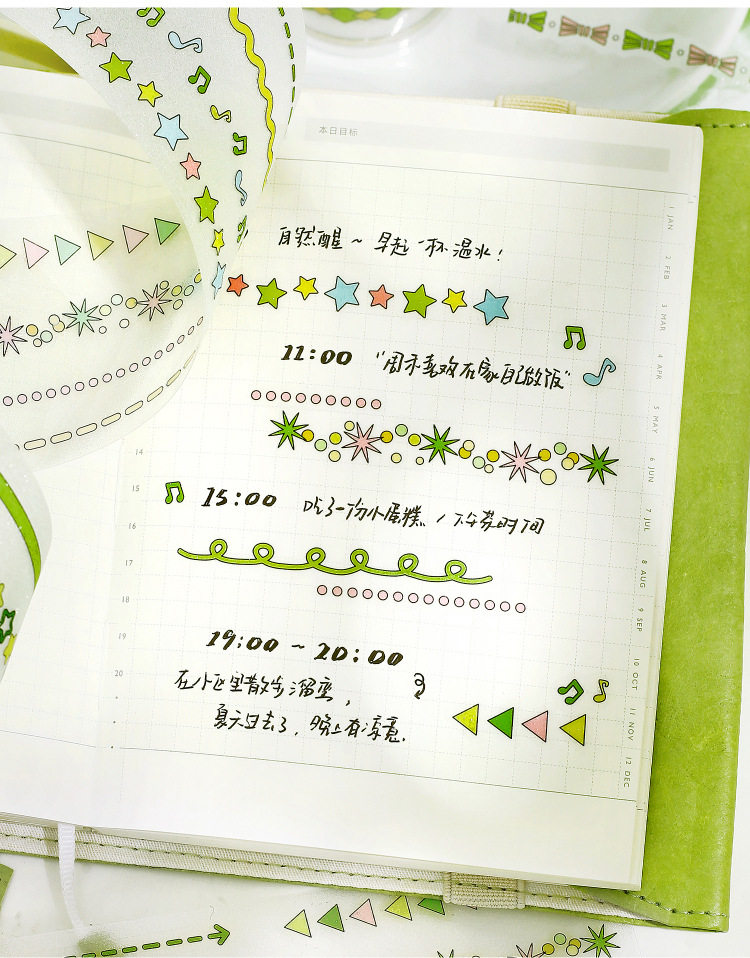 本日目标
自然醒 ~ 早起一杯温水!
11:00 "周末喜欢在家自己做饭"
14
15
15:00 吃了一份小蛋糕 / 下午茶时间
16
17
18
19:00 ~ 20:00
19
20
在小区里散步溜弯,
夏天过去了, 晚上有凉意.
21
1 JAN
2 FEB
3 MAR
4 APR
5 MAY
6 JUN
7 JUL
8 AUG
9 SEP
10 OCT
11 NOV
12 DEC